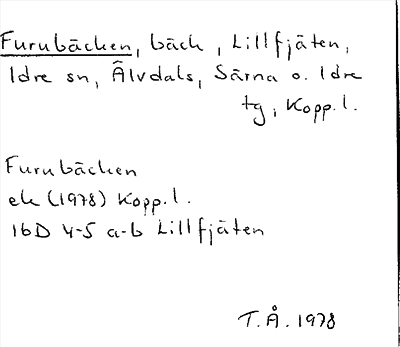 Furubäcken, bäck, Lillfjäten,
Idre sn, Älvdals, Särna o. Idre
tg, Kopp.l.
Furubäcken
ek (1978) Kopp.l.
16D 4-5 a-b Lillfjäten
T.Å. 1978